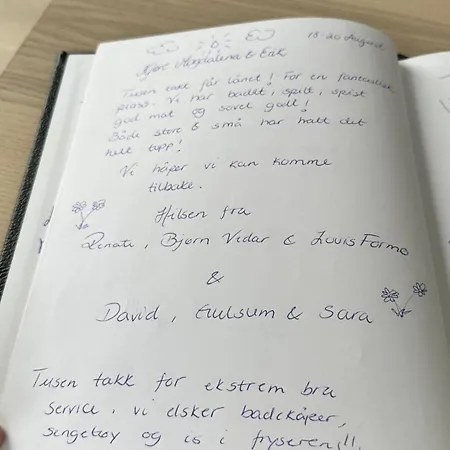 18-20 August
Kjære Magdalena & Erik
Tusen takk for lånet! For en fantastisk
plass. Vi har badet, spilt, spist
god mat og sovet godt!
Både store & små har hatt det
helt topp!
Vi håper vi kan komme
tilbake.
Hilsen fra
Renate, Bjørn Vidar & Louis Formo
&
David, Gulsum & Sara
Tusen takk for ekstrem bra
service, vi elsker badekåper,
sengetøy og is i fryseren!!!